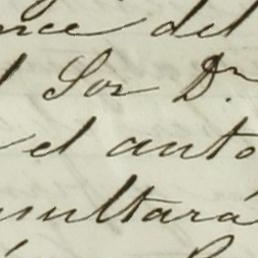 nce del
l Sor Dn
el auto
sultará